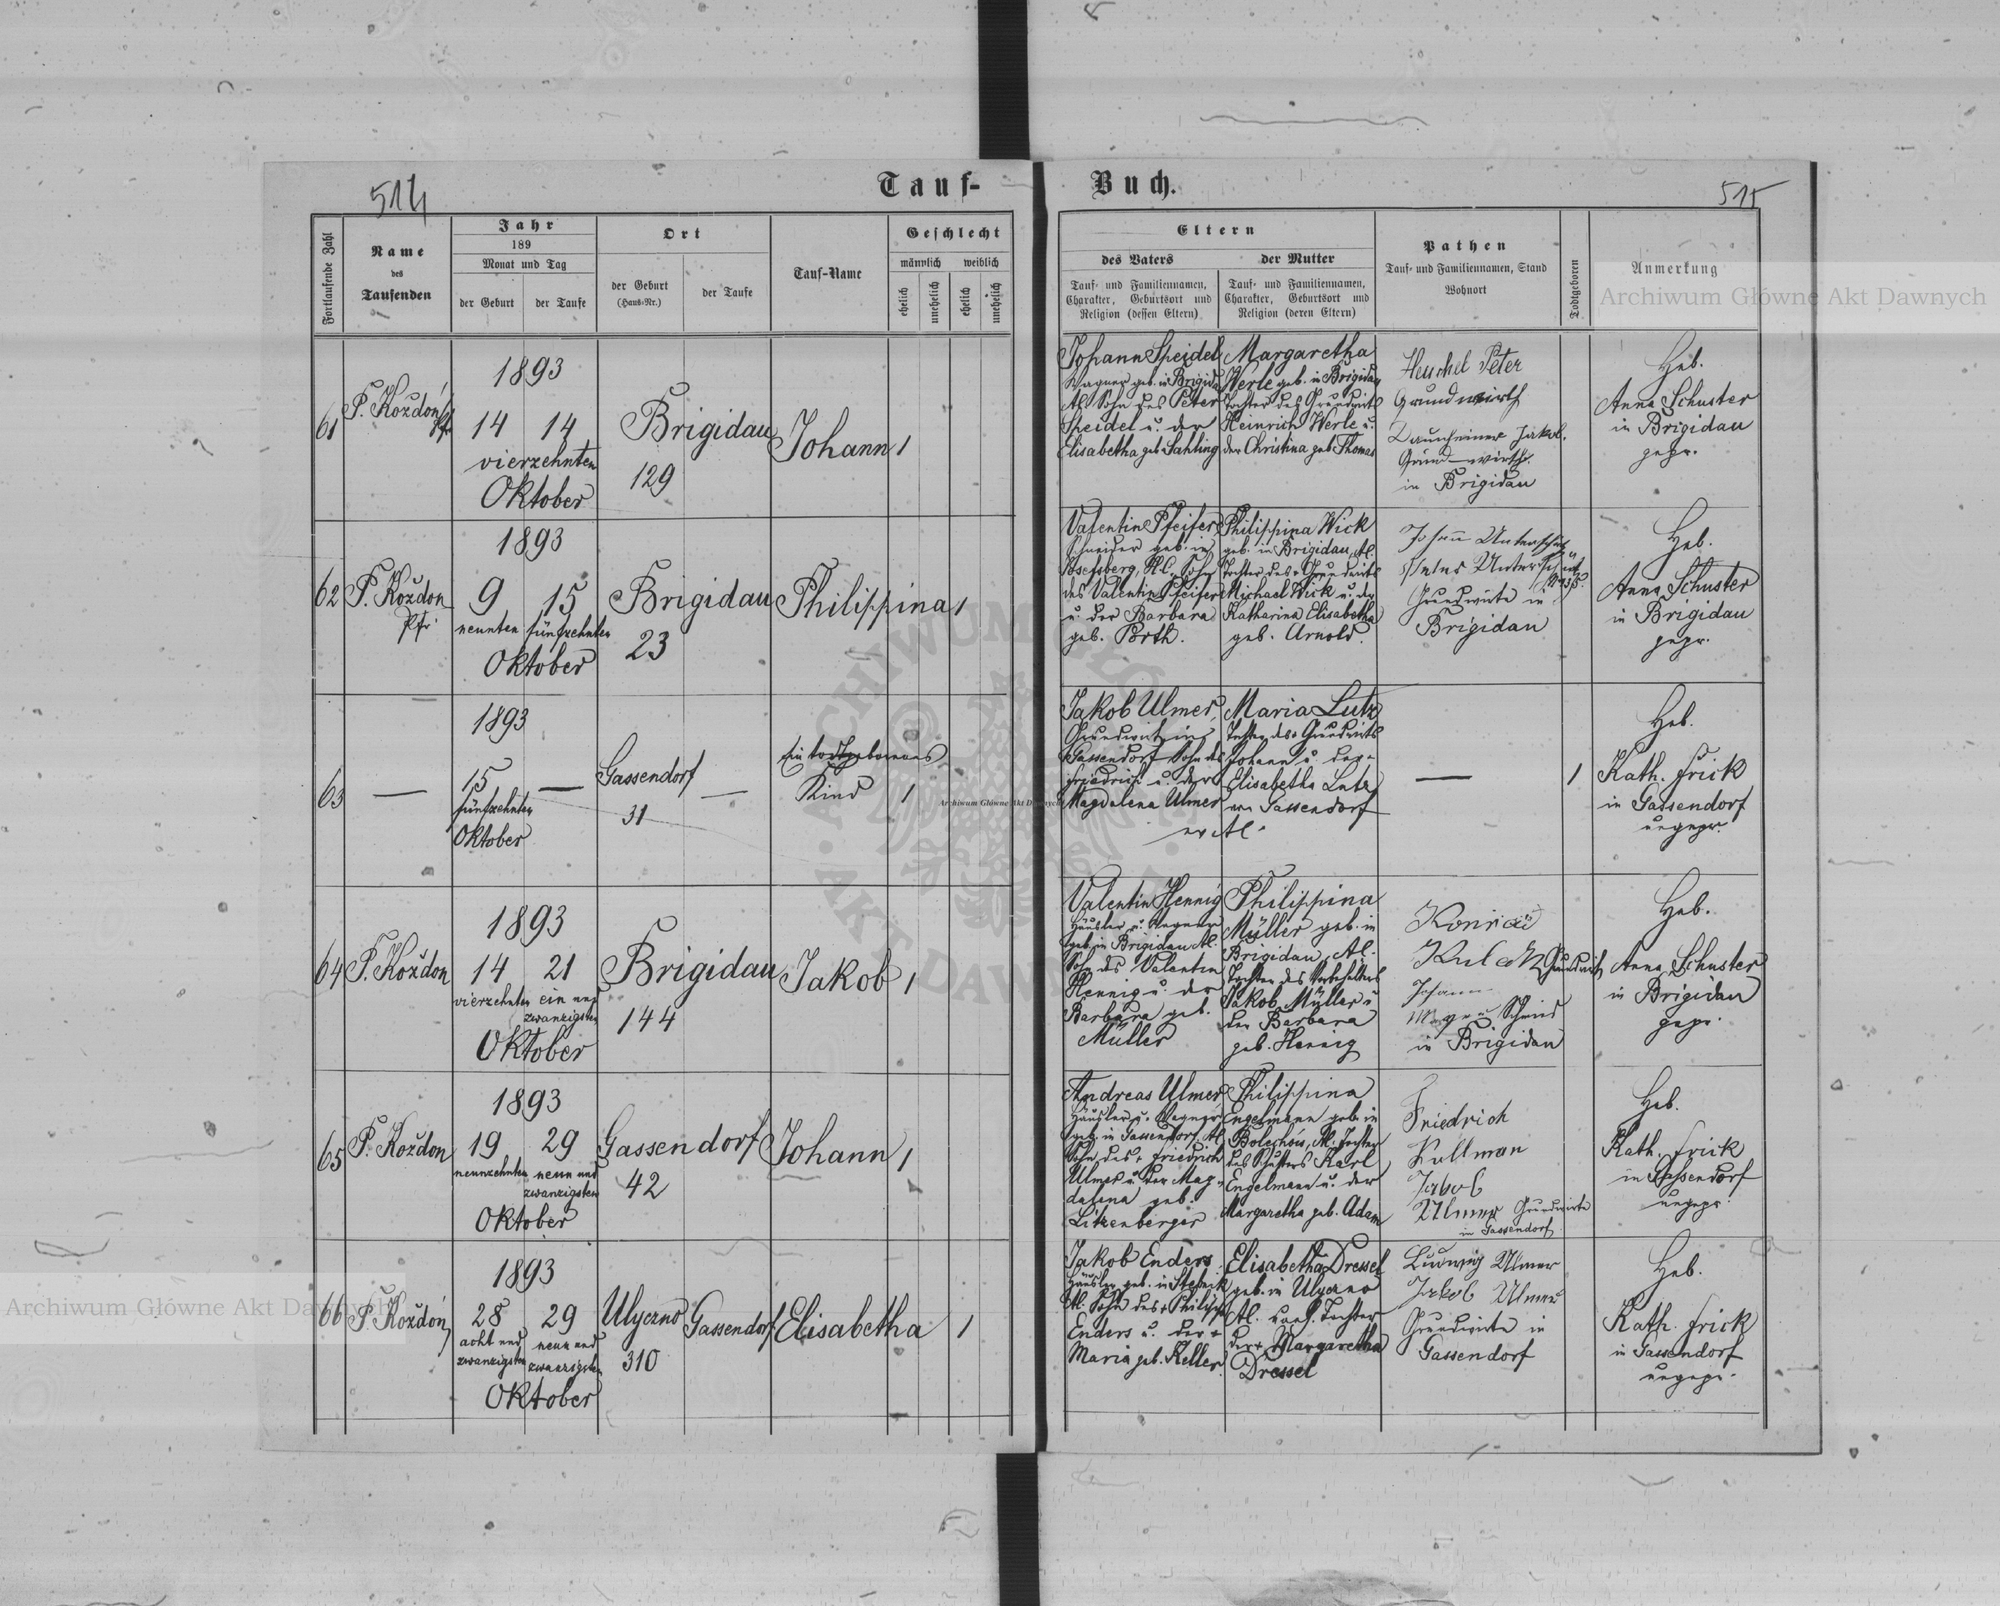 514
Tauf-
Buch.
515
Fortlaufende Zahl
Name
des
Taufenden
Jahr
189
Monat und Tag
der Geburt
der Taufe
Ort
der Geburt
(Haus-Nr.)
der Taufe
Tauf-Name
Geschlecht
männlich
weiblich
ehelich
unehelich
ehelich
unehelich
Eltern
des Vaters
Tauf- und Familiennamen,
Charakter, Geburtsort und
Religion (dessen Eltern)
der Mutter
Tauf- und Familiennamen,
Charakter, Geburtsort und
Religion (deren Eltern)
Pathen
Tauf- und Familiennamen, Stand
Wohnort
Todtgeboren
Anmerkung
61
P. Koždoń
Pfr.
1893
14 14
vierzehnten
Oktober
Brigidau
129
Johann
1
Johann Speidel
Wagner geb. in Brigidau
Al. Sohn des Peter
Speidel u. der
Elisabetha geb. Sahling
Margaretha
Werle geb. in Brigidau
Tochter des Grundwirts
Heinrich Werle u.
der Christina geb. Thomas
Heuchel Peter
Grundwirth
Jakob
Grundwirth
in Brigidau
Heb.
Anna Schuster
in Brigidau
gepr.
62
P. Koždon
Pfr.
1893
9 15
neunten fünfzehnten
Oktober
Brigidau
23
Philippina
1
Valentin Pfeifer
Schneider geb. in
Josefsberg, H.C. Sohn
des Valentin Pfeifer
u. der Barbara
geb. Porth.
Philippina Wick
geb. in Brigidau, Al.
Tochter des Grundwirts
Michael Wick u. der
Katharina Elisabetha
geb. Arnold.
Johann Unterschütz
Unterschütz
Grundwirte in
Brigidau
Heb.
Anna Schuster
in Brigidau
gepr.
63
—
1893
15 —
fünfzehnten
Oktober
Gassendorf
31
—
Ein todtgeborenes
Kind
1
Jakob Ulmer,
Grundwirt in
Gassendorf Sohn des
Friedrich u. der
Magdalena Ulmer
Maria Lutz
Tochter des Grundwirts
Johann u. der
Elisabetha Lutz
Gassendorf
Al.
—
1
Heb.
Kath. Frick
in Gassendorf
ungepr.
64
P. Koždon
1893
14 21
vierzehnten ein und
zwanzigsten
Oktober
Brigidau
144
Jakob
1
Valentin Hennig
Häusler u. Wagner
geb. in Brigidau Al.
Sohn des Valentin
Hennig u. der
Barbara geb.
Müller
Philippina
Müller geb. in
Brigidau, Al.
Tochter des
Jakob Müller u
der Barbara
geb. Hennig
Konrad
Grundwirt
Johann
Schmid
in Brigidau
Heb.
Anna Schuster
in Brigidau
gepr.
65
P. Koždon
1893
19 29
neunzehnten neun und
zwanzigsten
Oktober
Gassendorf
42
Johann
1
Andreas Ulmer
Häusler u. Wagner
geb. in Gassendorf, Al.
Sohn des + Friedrich
Ulmer u. der Mag-
dalena geb.
Litzenberger
Philippina
Engelmann geb. in
Bolechów, Al. Tochter
des Schusters Karl
Engelmann u. der
Margaretha geb. Adam
Friedrich
Kullman
Jakob
Ulmer Grundwirte
in Gassendorf
Heb.
Kath. Frick
in Gassendorf
ungepr.
66
P. Koždoń
1893
28 29
acht und neun und
zwanzigsten zwanzigsten
Oktober
Ulyczno
310
Gassendorf
Elisabetha
1
Jakob Enders
Häusler geb. in
Al. Sohn des + Philipp
Enders u. der +
Maria geb. Keller.
Elisabetha Dressel
geb. in Ulyczno
Al. Tochter
der + Margaretha
Dressel
Ludwig Ulmer
Jakob Ulmer
Grundwirte in
Gassendorf
Heb.
Kath. Frick
in Gassendorf
ungepr.
Archiwum Główne Akt Dawnych
Archiwum Główne Akt Dawnych
Archiwum Główne Akt Dawnych